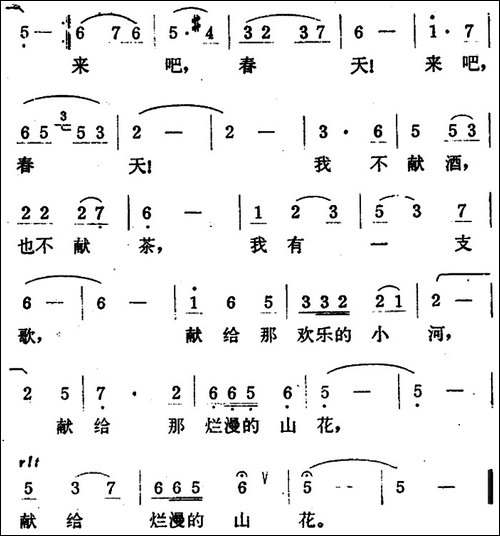 5 — :‖ 6 7 6 | 5 · #4 | 3 2 3 7 | 6 — | 1 · 7
来 吧， 春 天！ 来 吧，
6 5 3 5 3 | 2 — | 2 — | 3 · 6 | 5 5 3
春 天！ 我 不 献 酒，
2 2 2 7 | 6 — | 1 2 3 | 5 3 7
也不 献 茶， 我 有 一 支
6 — | 6 — | 1 6 5 | 3 3 2 2 1 | 2 —
歌， 献 给 那 欢乐的 小 河，
2 5 | 7 · 2 | 6 6 5 6 | 5 — | 5 —
献 给 那 烂漫的 山 花，
rit
5 3 7 | 6 6 5 6 ∨ | 5 — | 5 — ‖
献 给 烂漫的 山 花。